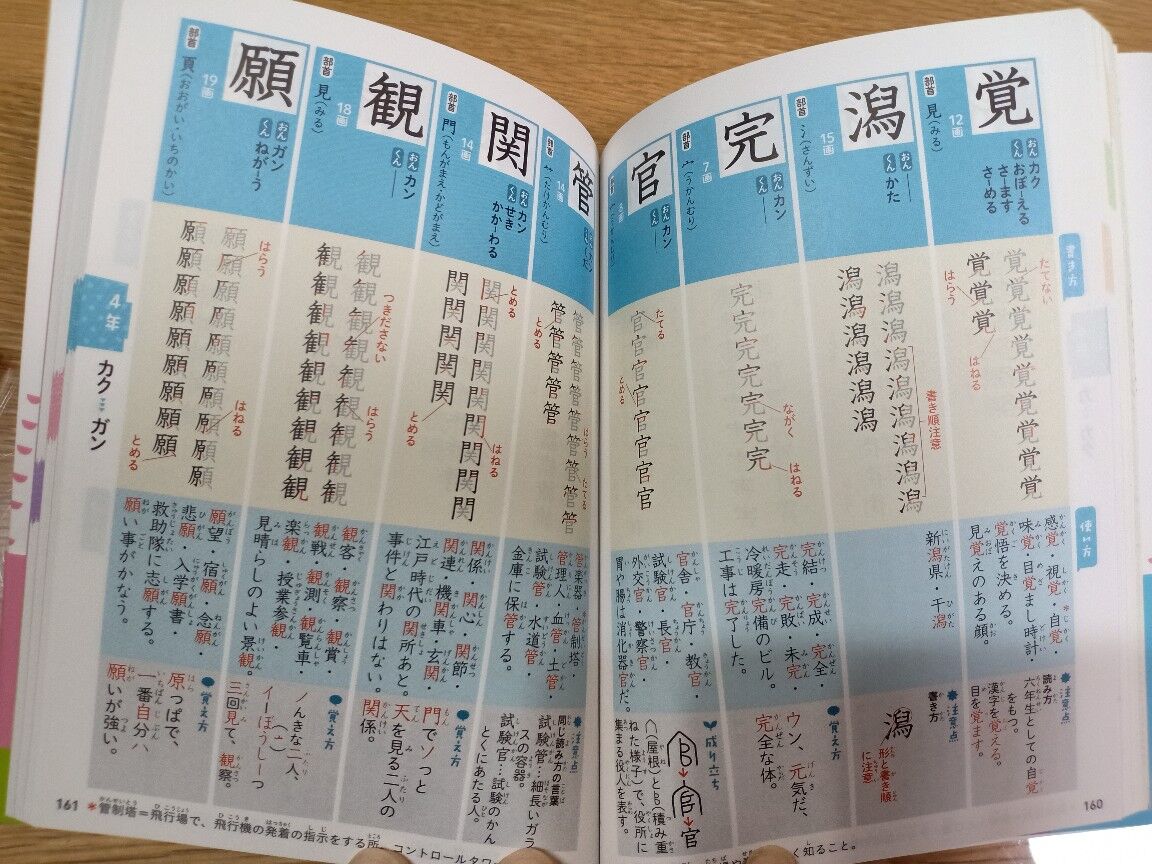 書き方
使い方
覚
部首
見(みる)
12画
おん カク
くん おぼーえる
さーます
さーめる
覚覚覚覚覚覚覚覚覚
覚覚覚
たてない
はらう
はねる
感覚・視覚・*自覚・
味覚・目覚まし時計・
覚悟を決める。
見覚えのある顔。
注意点
読み方
六年生としての自覚
をもつ。
漢字を覚える。
目を覚ます。
潟
部首
氵(さんずい)
15画
おん ―
くん かた
潟潟潟潟潟潟潟潟潟
潟潟潟潟潟潟
書き順注意
新潟県・干潟
注意点
書き方
潟
形と書き順
に注意
完
部首
宀(うかんむり)
7画
おん カン
くん ―
完完完完完完完
ながく
はねる
完結・完成・完全・
完走・完敗・未完・
冷暖房完備のビル。
工事は完了した。
覚え方
ウン、元気だ、
完全な体。
官
8画
おん カン
くん ―
官官官官官官官官
たてる
とめる
官舎・官庁・教官・
試験官・長官・
外交官・警察官・
胃や腸は消化器官だ。
成り立ち
官
(屋根)と(積み重
ねた様子)で、役所に
集まる役人を表す。
160
管
部首
(たけかんむり)
14画
管管管管管管管管管
管管管管管
はらう
たてる
とめる
管楽器・*管制塔・
管理人・血管・土管・
試験管・水道管・
金庫に保管する。
注意点
同じ読み方の言葉
試験管…細長いガラ
スの容器。
試験官…試験のかん
とくにあたる人。
関
部首
門(もんがまえ・かどがまえ)
14画
おん カン
くん せき
かかーわる
関関関関関関関関関
関関関関関
とめる
はねる
とめる
関係・関心・関節・
関連・機関車・玄関・
江戸時代の関所あと。
事件と関わりはない。
覚え方
門でソっと
天を見る二人の
関係。
観
部首
見(みる)
18画
おん カン
くん ―
観観観観観観観観観
観観観観観観観観観
つきださない
はらう
観客・観察・観賞・
観戦・観測・観覧車・
楽観・授業参観・
見晴らしのよい景観。
覚え方
ノんきな二人、
イーぼうしーつ
(亠)
三回見て、観察。
願
部首
頁(おおがい・いちのかい)
19画
おん ガン
くん ねがーう
願願願願願願願願願願
願願願願願願願願願
はらう
はねる
とめる
願望・宿願・念願・
悲願・入学願書・
救助隊に志願する。
願い事がかなう。
覚え方
原っぱで、
一番自分ハ
願いが強い。
4年
カク〜ガン
161
*管制塔=飛行場で、飛行機の発着の指示をする所。コントロールタワ
く知ること。